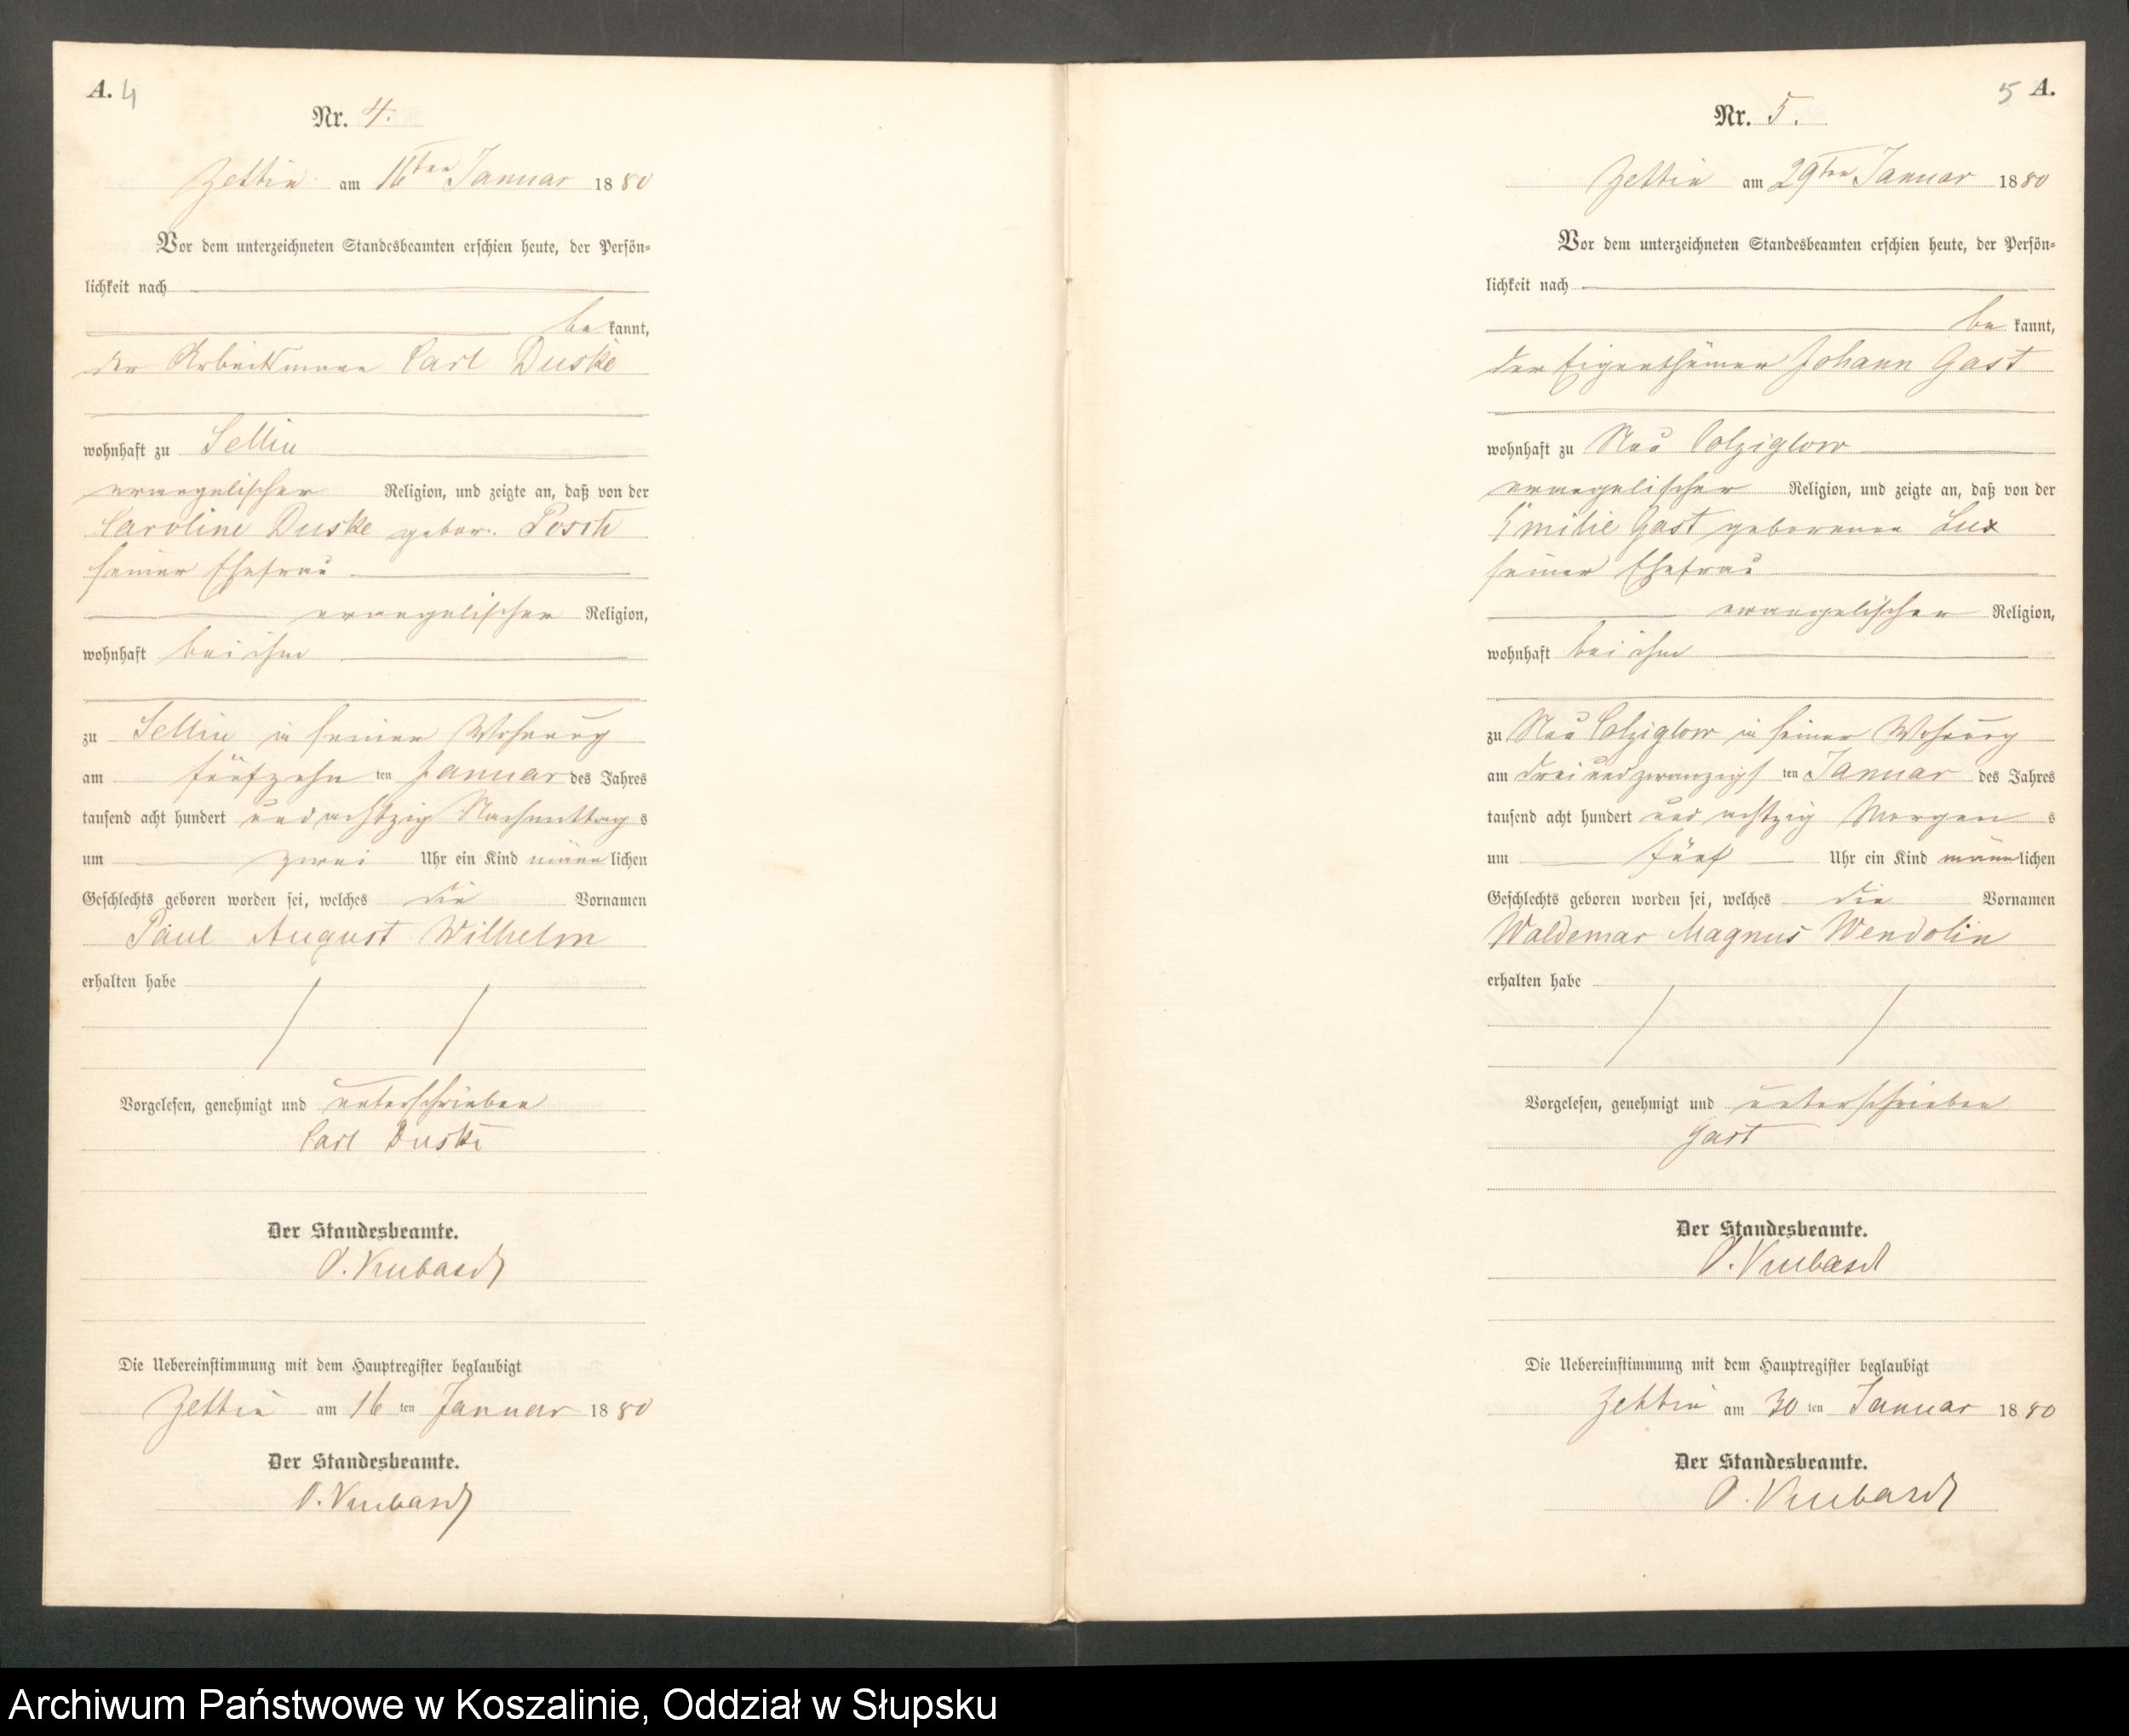 A. 4
Nr. 4.
Zettin am 16ten Januar 1880
Vor dem unterzeichneten Standesbeamten erschien heute, der Persön-
lichkeit nach
be kannt,
der Arbeitsmann Carl Duske
wohnhaft zu Sellin
evangelischer Religion, und zeigte an, daß von der
Caroline Duske gebor.
seiner Ehefrau
evangelischer Religion,
wohnhaft bei ihm
zu Sellin in seiner Wohnung
am fünfzehn ten Januar des Jahres
tausend acht hundert und achtzig Nachmittag s
um zwei Uhr ein Kind männlichen
Geschlechts geboren worden sei, welches die Vornamen
Paul August Wilhelm
erhalten habe
Vorgelesen, genehmigt und unterschrieben
Carl Duske
Der Standesbeamte.
Die Uebereinstimmung mit dem Hauptregister beglaubigt
Zettin am 16 ten Januar 1880
Der Standesbeamte.
5 A.
Nr. 5.
Zettin am 29ten Januar 1880
Vor dem unterzeichneten Standesbeamten erschien heute, der Persön-
lichkeit nach
be kannt,
der Eigenthümer Johann Gast
wohnhaft zu Neu Colziglow
evangelischer Religion, und zeigte an, daß von der
Emilie Gast geborenen Lux
seiner Ehefrau
evangelischer Religion,
wohnhaft bei ihm
zu Neu Colziglow in seiner Wohnung
am drei und zwanzigs ten Januar des Jahres
tausend acht hundert und achtzig Morgen s
um fünf Uhr ein Kind männlichen
Geschlechts geboren worden sei, welches die Vornamen
Waldemar Magnus Wendolin
erhalten habe
Vorgelesen, genehmigt und unterschrieben
Gast
Der Standesbeamte.
Die Uebereinstimmung mit dem Hauptregister beglaubigt
Zettin am 30 ten Januar 1880
Der Standesbeamte.
Archiwum Państwowe w Koszalinie, Oddział w Słupsku